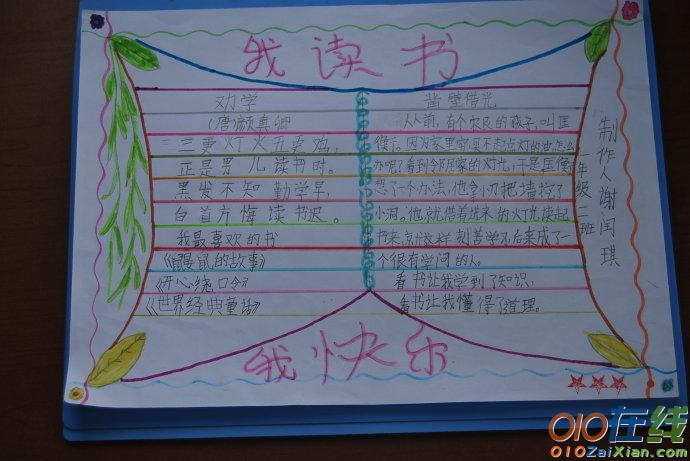 我读书
劝学
(唐)颜真卿
三更灯火五更鸡，
正是男儿读书时。
黑发不知勤学早，
白首方悔读书迟。
我最喜欢的书
《鼹鼠的故事》
《开心绕口令》
《世界经典童话》
凿壁借光
从前，有个农民的孩子，叫匡
衡。因为家里穷，买不起点灯的油，怎么
办呢？看到邻居家的灯光，于是匡衡
想了一个办法，他拿小刀把墙挖了
小洞。他就借着进来的灯光读起
书来，就这样刻苦学习，后来成了一
个很有学问的人。
看书让我学到了知识，
看书让我懂得了道理。
年级二班
制作人谢闫琪
我快乐
010在线
010ZaiXian.com